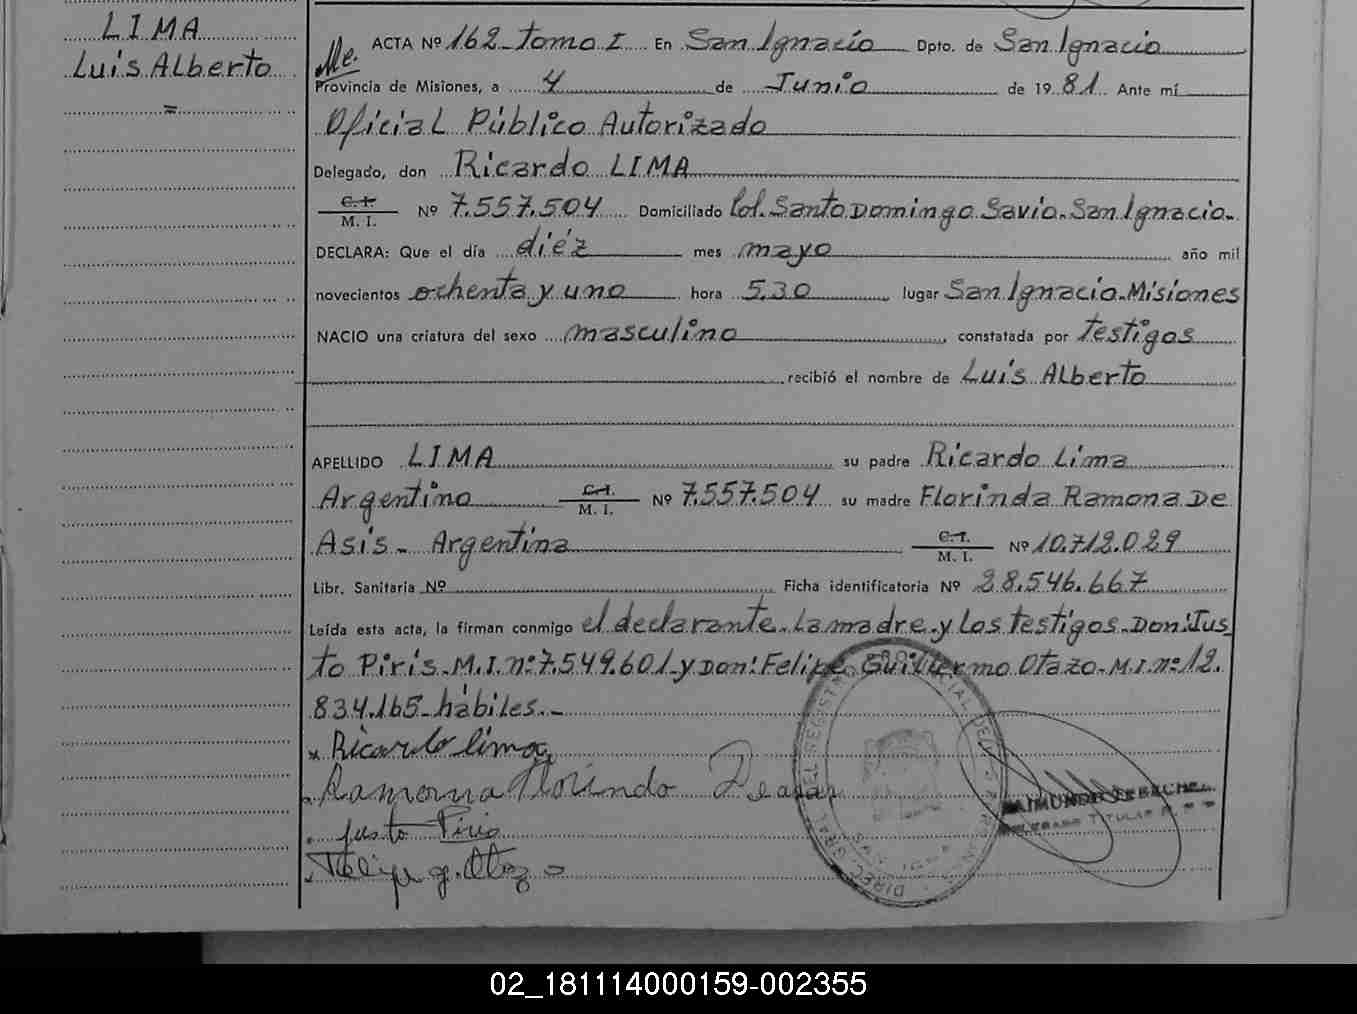 LIMA
Luis Alberto
=
Me.
ACTA Nº 162 - Tomo I En San Ignacio Dpto. de San Ignacio
Provincia de Misiones, a 4 de Junio de 1981 Ante mí
Oficial Público Autorizado
Delegado, don Ricardo LIMA
C. I. / M. I. Nº 7.557.504 Domiciliado Col. Santo Domingo Savio - San Ignacio.-
DECLARA: Que el día diéz mes mayo año mil
novecientos ochenta y uno hora 5.30 lugar San Ignacio - Misiones
NACIO una criatura del sexo masculino constatada por testigos
recibió el nombre de Luis Alberto
APELLIDO LIMA su padre Ricardo Lima
Argentino C. I. / M. I. Nº 7.557.504 su madre Florinda Ramona De
Asis - Argentina C. I. / M. I. Nº 10.712.029
Libr. Sanitaria Nº Ficha identificatoria Nº 28.546.667
Leída esta acta, la firman conmigo el declarante - La madre - y Los testigos - Don: Jus
to Piris - M.I. nº 7.549.601 - y Don: Felipe Guillermo Otazo - M.I. nº 12.
834.165 - hábiles.-
x Ricardo Lima
Ramona Florinda De asis
Justo Piris
Felipe g. Otazo
DIREC. GRAL. DEL REGISTRO PROVINCIAL DE LAS PERSONAS
SAN IGNACIO
RAIMUNDO
DELEGADO TITULAR
02_181114000159-002355